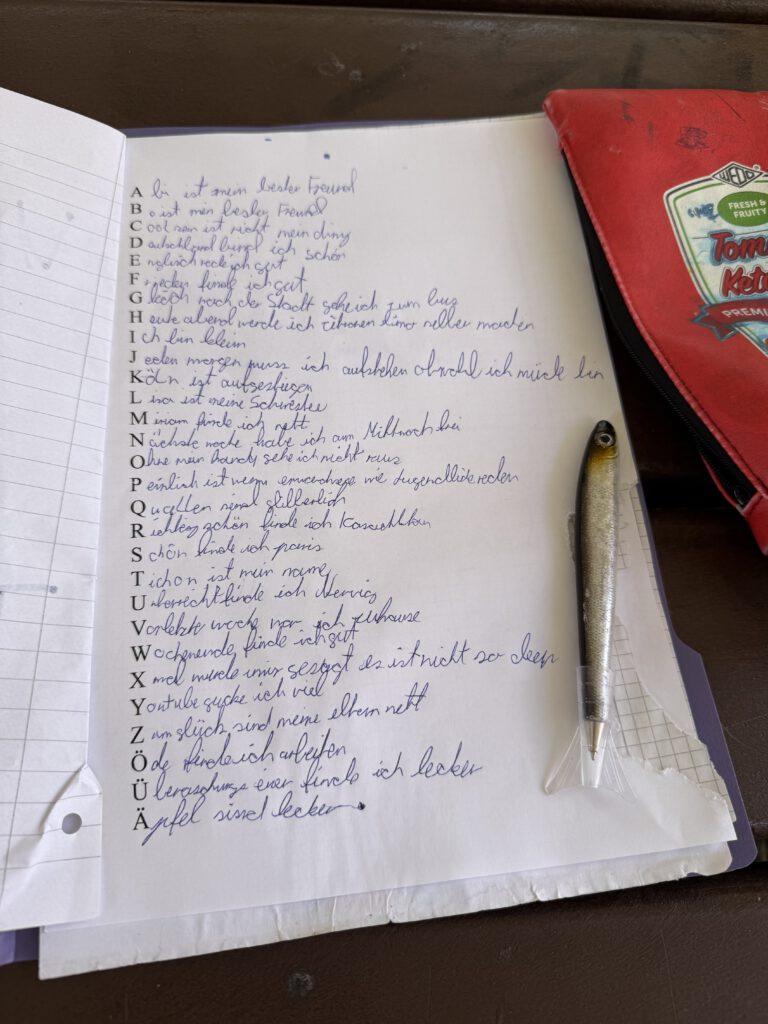 A bi ist mein bester Freund
B o ist mein bester Freund
C ool sein ist nicht mein ding
D eutschland find ich schön
E nglisch rede ich gut
F finde ich gut
G leich nach der Stadt gehe ich zum bus
H eute abend werde ich zitronen limo selber machen
I ch bin klein
J eden morgen muss ich aufstehen obwohl ich müde bin
K öln ist
L isa ist meine Schwester
M iriam finde ich nett
N ächste woche habe ich am Mittwoch frei
O hne mein handy gehe ich nicht raus
P einlich ist wenn erwachsene wie Jugendliche reden
Q uallen sind glibberich
R ichtig schön finde ich
S chön finde ich paris
T ichon ist mein name
U nterricht finde ich Nervig
V orletzte woche war ich zuhause
W ochenende finde ich gut
X mal wurde mir gesagt es ist nicht so deep
Y outube gucke ich viel
Z um glück sind meine eltern nett
Ö de finde ich arbeiten
Ü beraschungs eier finde ich lecker
Ä pfel sind lecker
WEDO
FRESH &
FRUITY
Tom
Ket
PREMI